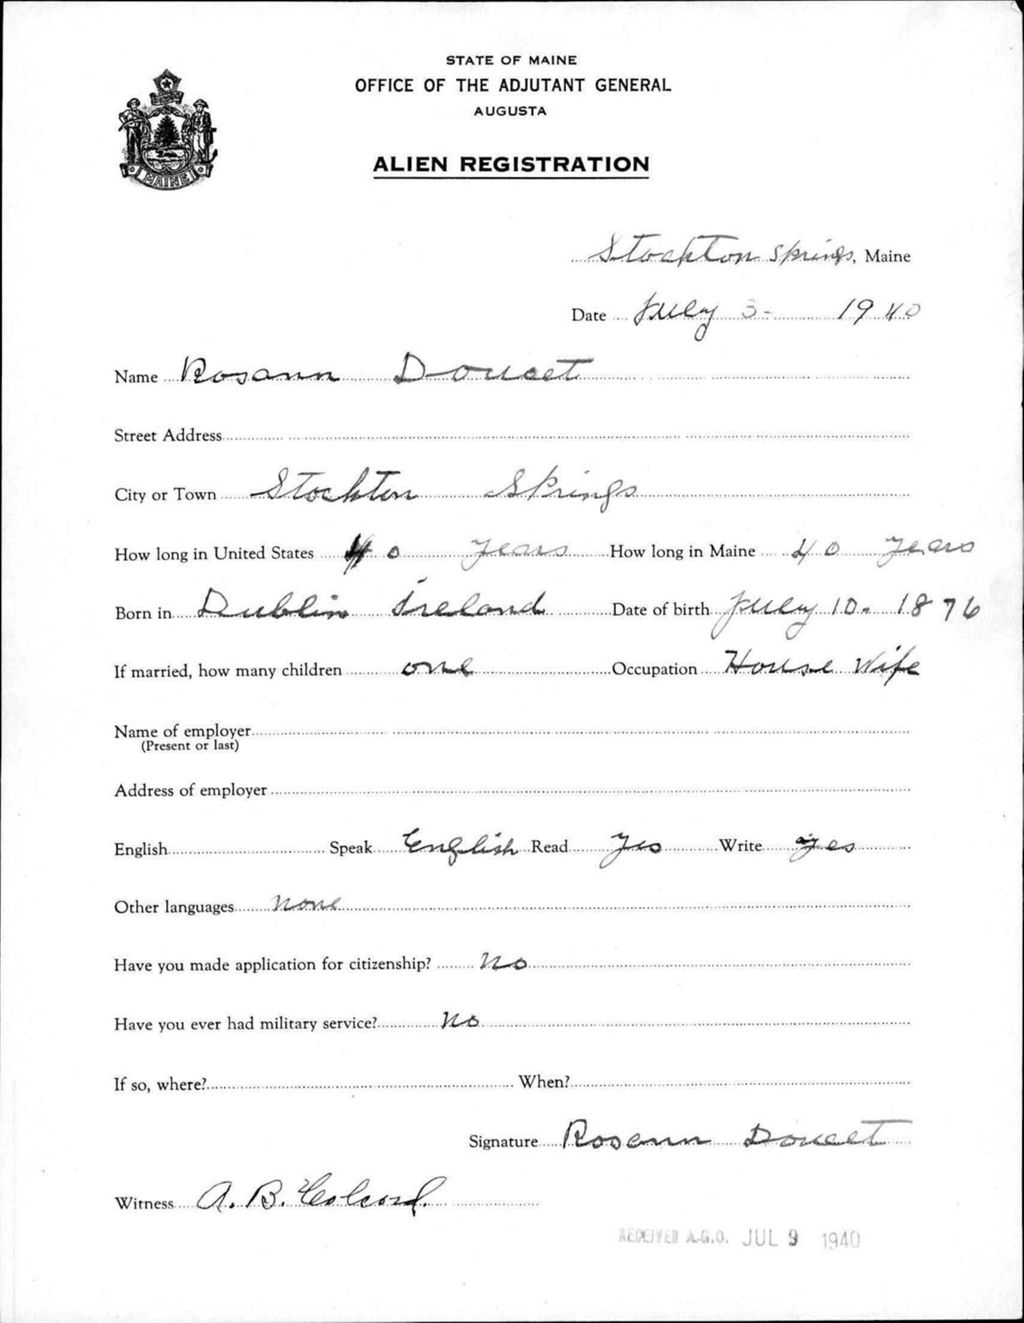 STATE OF MAINE
OFFICE OF THE ADJUTANT GENERAL
AUGUSTA
ALIEN REGISTRATION
MAINE
Stockton Springs, Maine
Date July 3- 1940
Name Rosann Doucet
Street Address
City or Town Stockton Springs
How long in United States 40 years How long in Maine 40 years
Born in Dublin Ireland Date of birth July 10. 1876
If married, how many children one Occupation House Wife
Name of employer
(Present or last)
Address of employer
English Speak English Read Yes Write yes
Other languages none
Have you made application for citizenship? No
Have you ever had military service? No
If so, where? When?
Signature Rosann Doucet
Witness A. B. Colcord.
RECEIVED A.G.O. JUL 9 1940